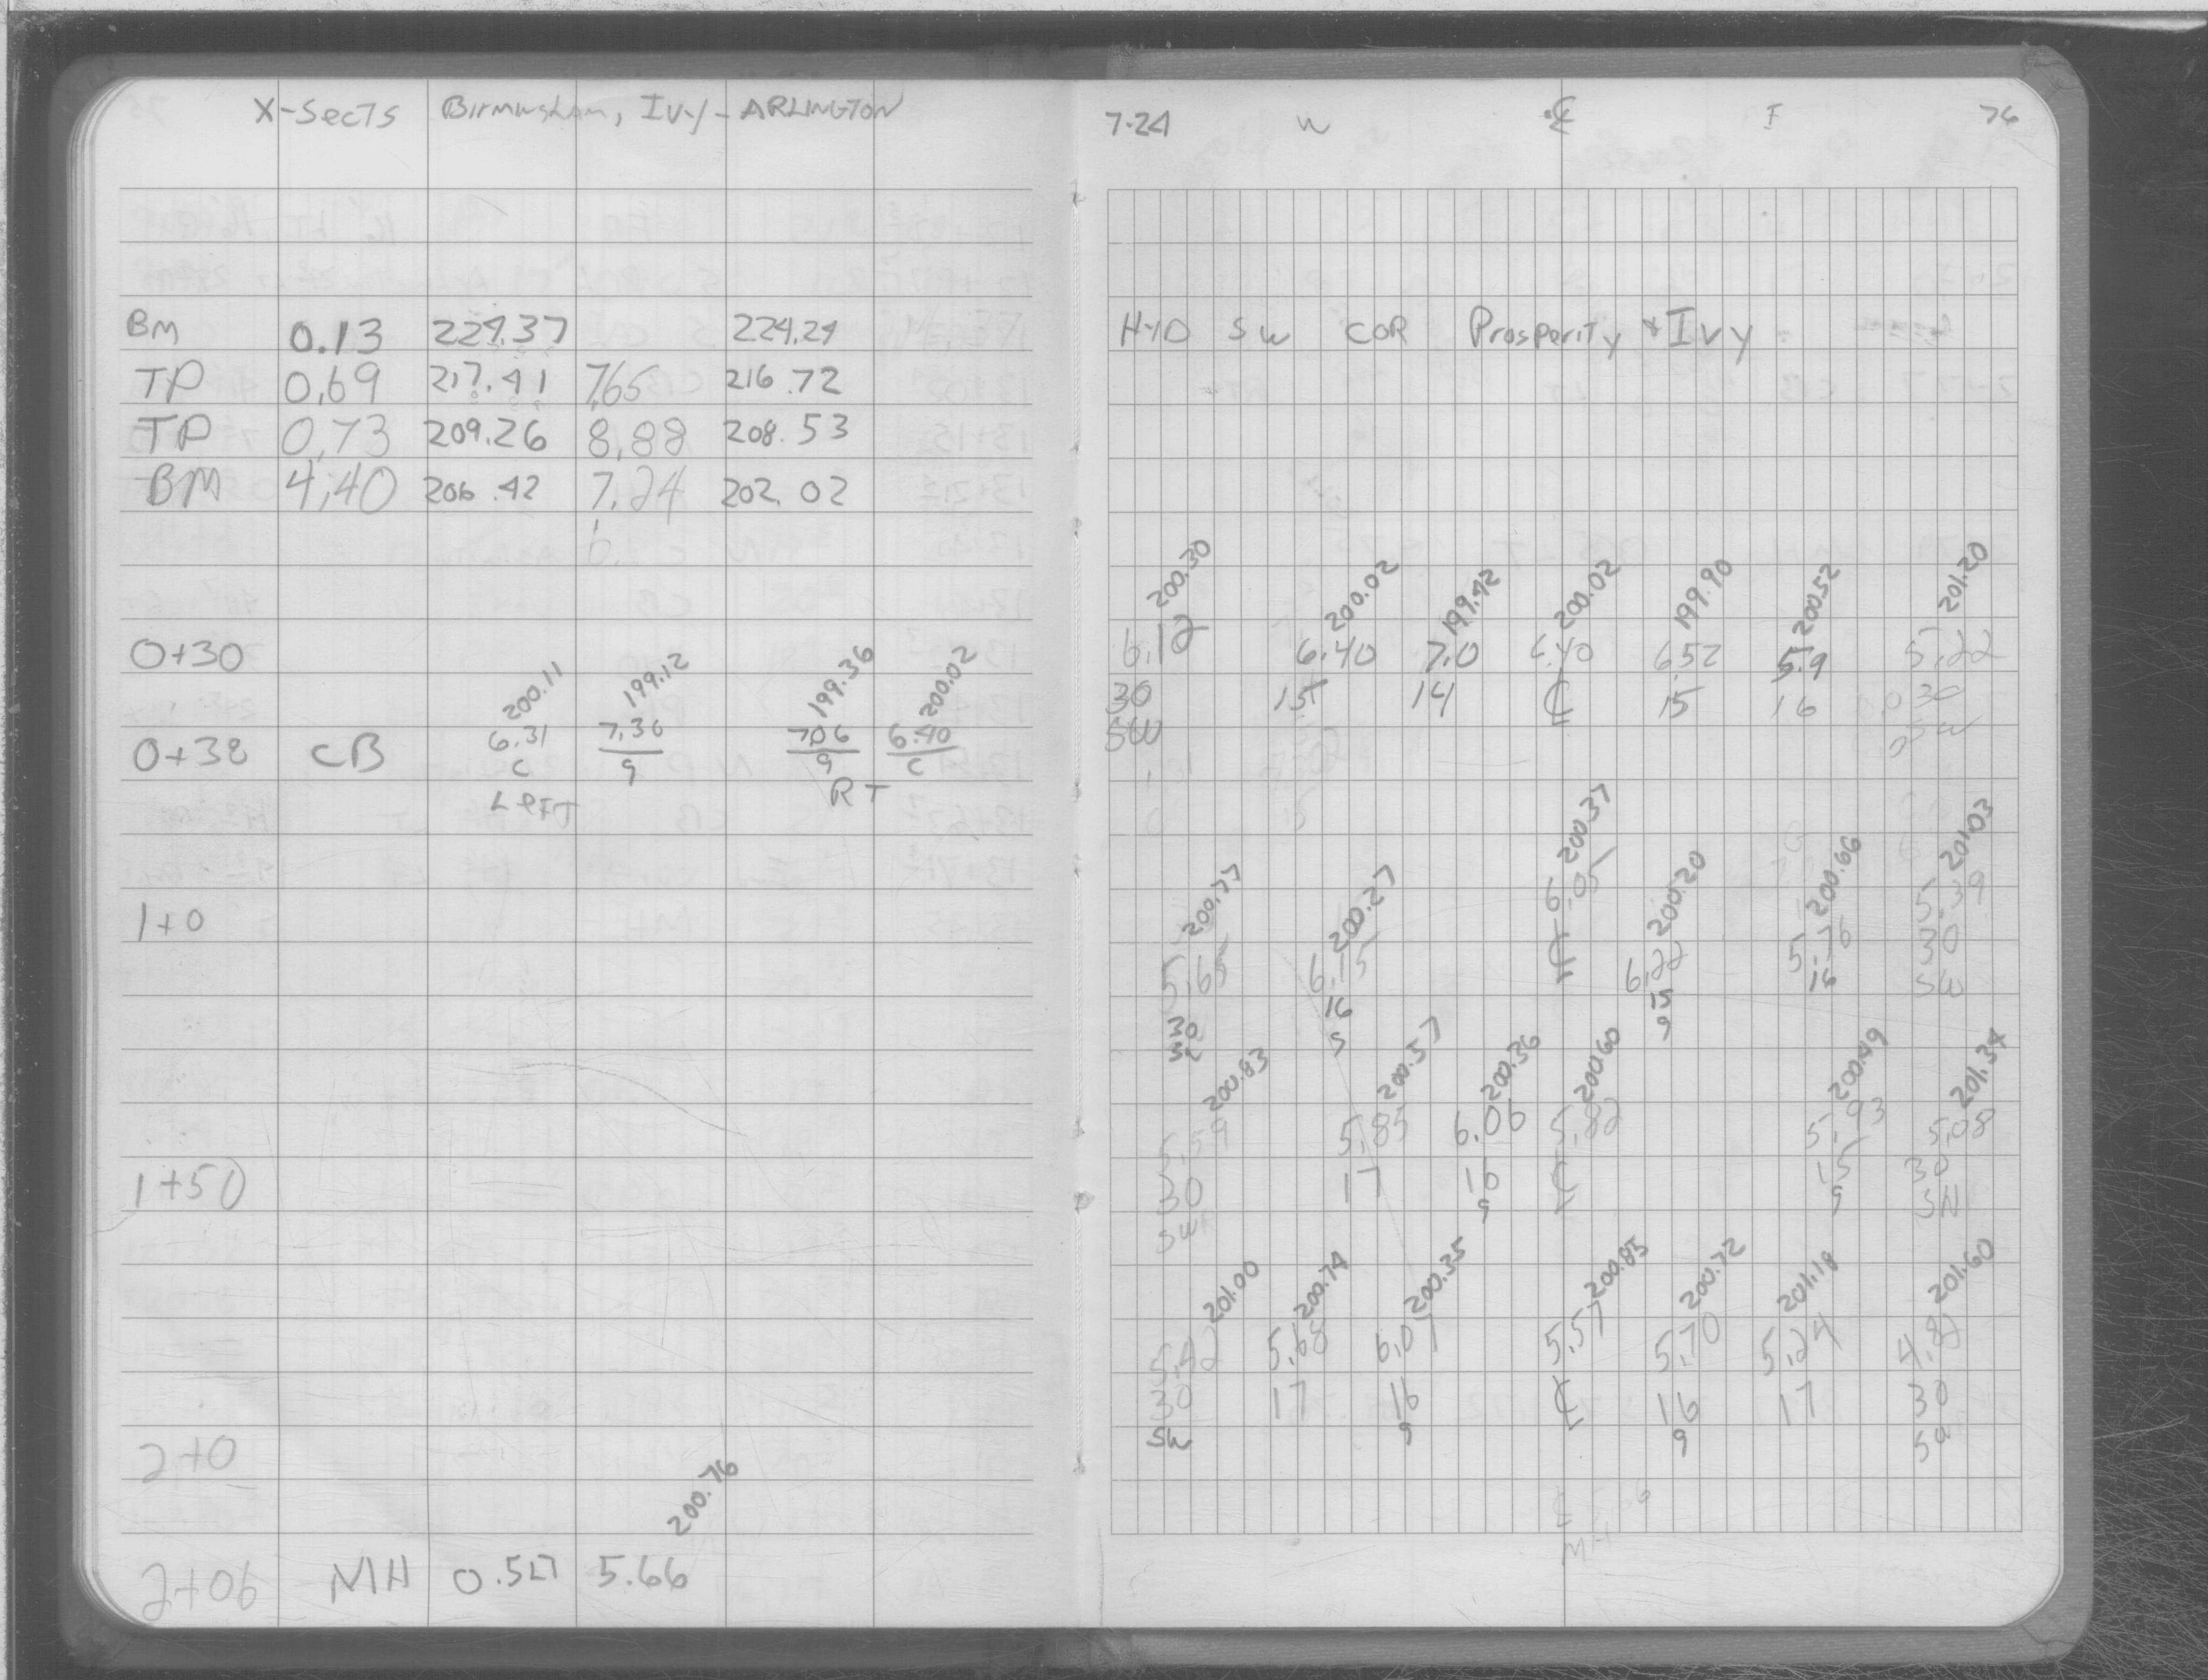 X-Sects Birmingham, Ivy - ARLINGTON
BM 0.13 224.37 224.24
TP 0.69 217.41 7.65 216.72
TP 0.73 209.26 8.88 208.53
BM 4.40 206.42 7.24 202.02
6
0+30
200.11 199.12 199.36 200.02
0+38 CB 6.31 7.30 7.06 6.40
C g g C
LEFT RT
1+0
1+50
2+0
200.76
2+06 MH 0.5LT 5.66
7.24 W ℄ E 76
HYD SW COR Prosperity & Ivy
200.30 200.02 199.42 200.02 199.90 200.52 201.20
6.12 6.40 7.0 6.40 6.52 5.9 5.22
30 15 14 ℄ 15 16 30
SW SW
200.77 200.27 200.37 200.20 200.66 201.03
5.65 6.15 6.05 6.22 5.76 5.39
30 16 ℄ 15 16 30
g g SW
200.83 200.57 200.36 200.60 200.49 201.34
5.59 5.85 6.06 5.82 5.93 5.08
30 17 16 ℄ 15 30
SW g g SW
201.00 200.74 200.35 200.85 200.72 201.18 201.60
5.42 5.68 6.07 5.57 5.70 5.24 4.82
30 17 16 ℄ 16 17 30
SW g g SW
MH